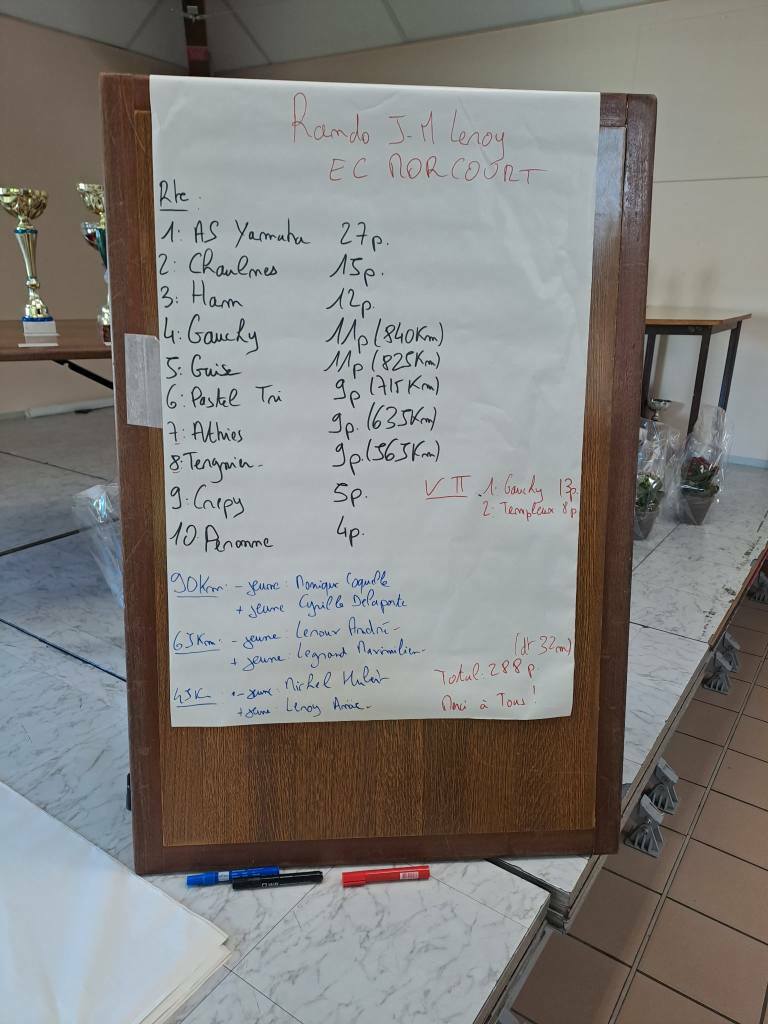 Rando J-M Leroy
EC MORCOURT
Rte :
1: AS Yamaha 27p.
2: Chaulnes 15p.
3: Ham 12p.
4: Gauchy 11p (840Km)
5: Guise 11p (825Km)
6: Pastel Tri 9p (715Km)
7: Athies 9p. (635Km)
8: Tergnier 9p. (565Km)
9: Crepy 5p.
10 Peronne 4p.
VTT 1: Gauchy 13p.
2: Templeux 8p
90Km: - jeune: Monique Coquelle
+ jeune Cyrille Delaporte
65Km: - jeune: Lenour André
+ jeune: Legrand Maximilien
45K - jeune: Michel
+ jeune: Leroy
(dt 32m)
Total: 288p
Merci à Tous!